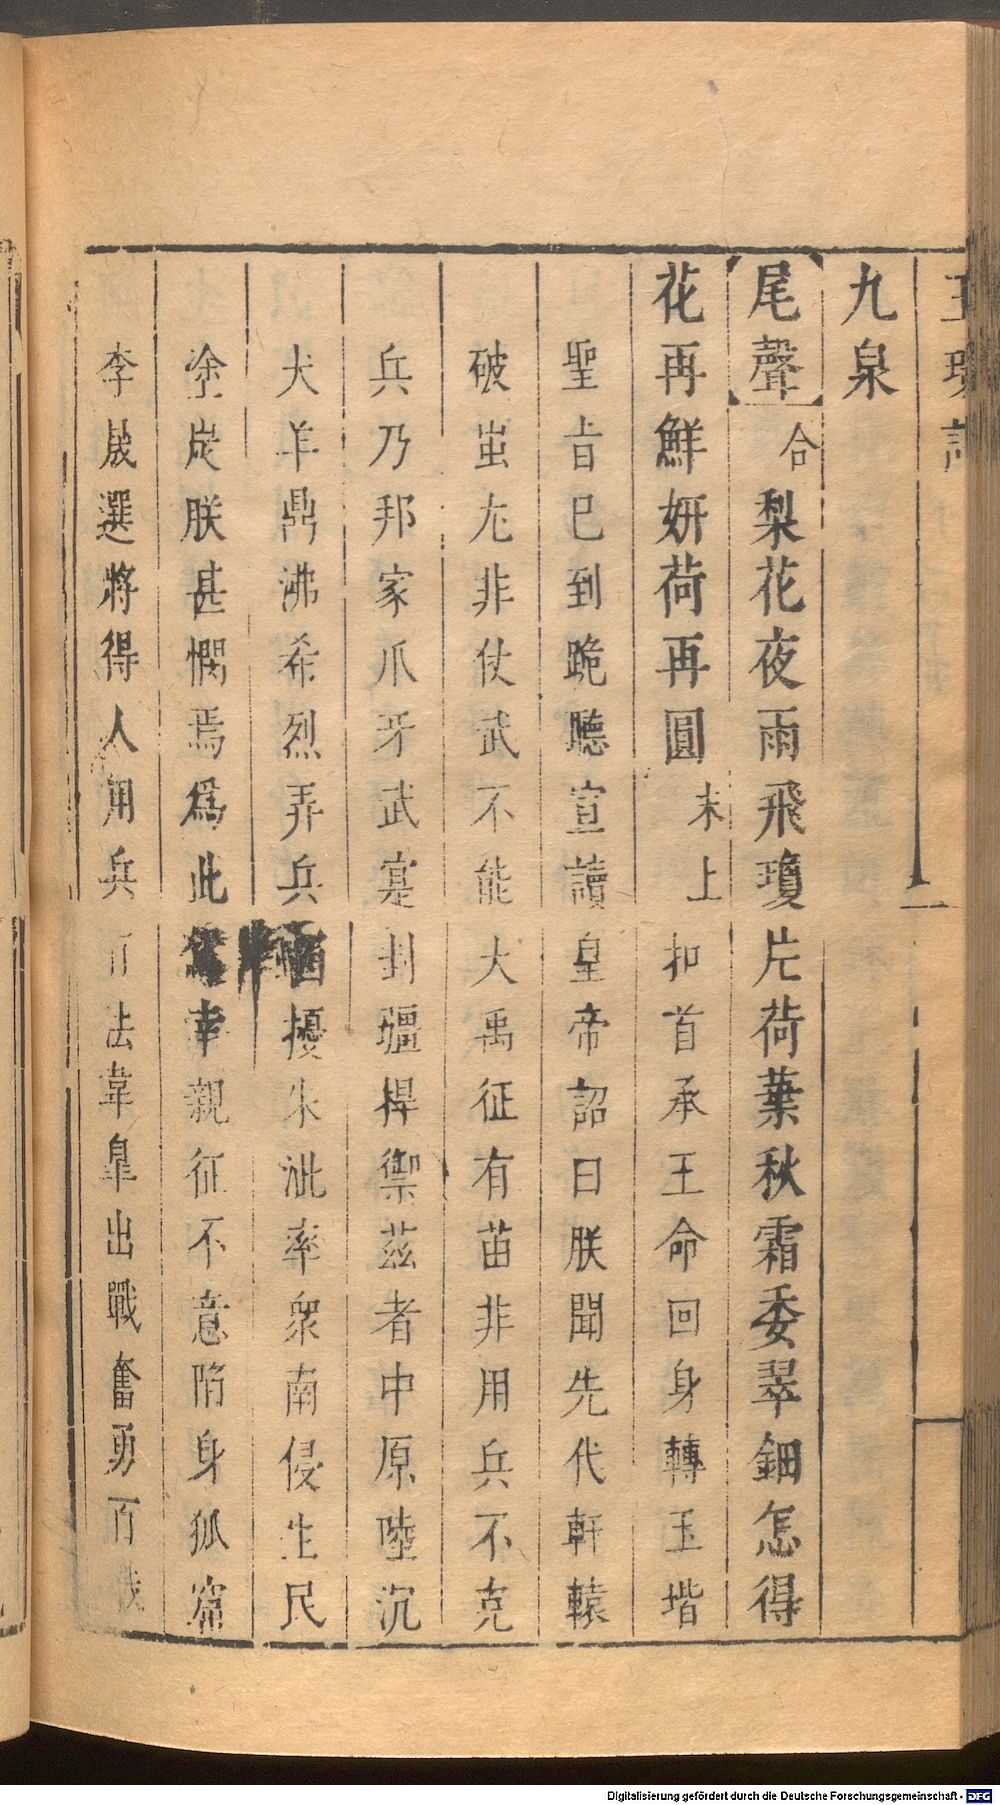 九泉
尾聲 合 梨花夜雨飛瓊片荷葉秋霜委翠鈿怎得
花再鮮妍荷再圓 末上 扣首承王命回身轉玉堦
聖旨已到跪聽宣讀皇帝詔曰朕聞先代軒轅
破蚩尤非仗武不能大禹征有苗非用兵不克
兵乃邦家爪牙武寔封疆捍禦茲者中原陸沉
犬羊鼎沸希烈弄兵 擾朱泚率衆南侵生民
塗炭朕甚憫焉爲此 幸親征不意陷身狐窟
李晟選將得人用兵有法韋臯出戰奮勇百戰
Digitalisierung gefördert durch die Deutsche Forschungsgemeinschaft - DFG